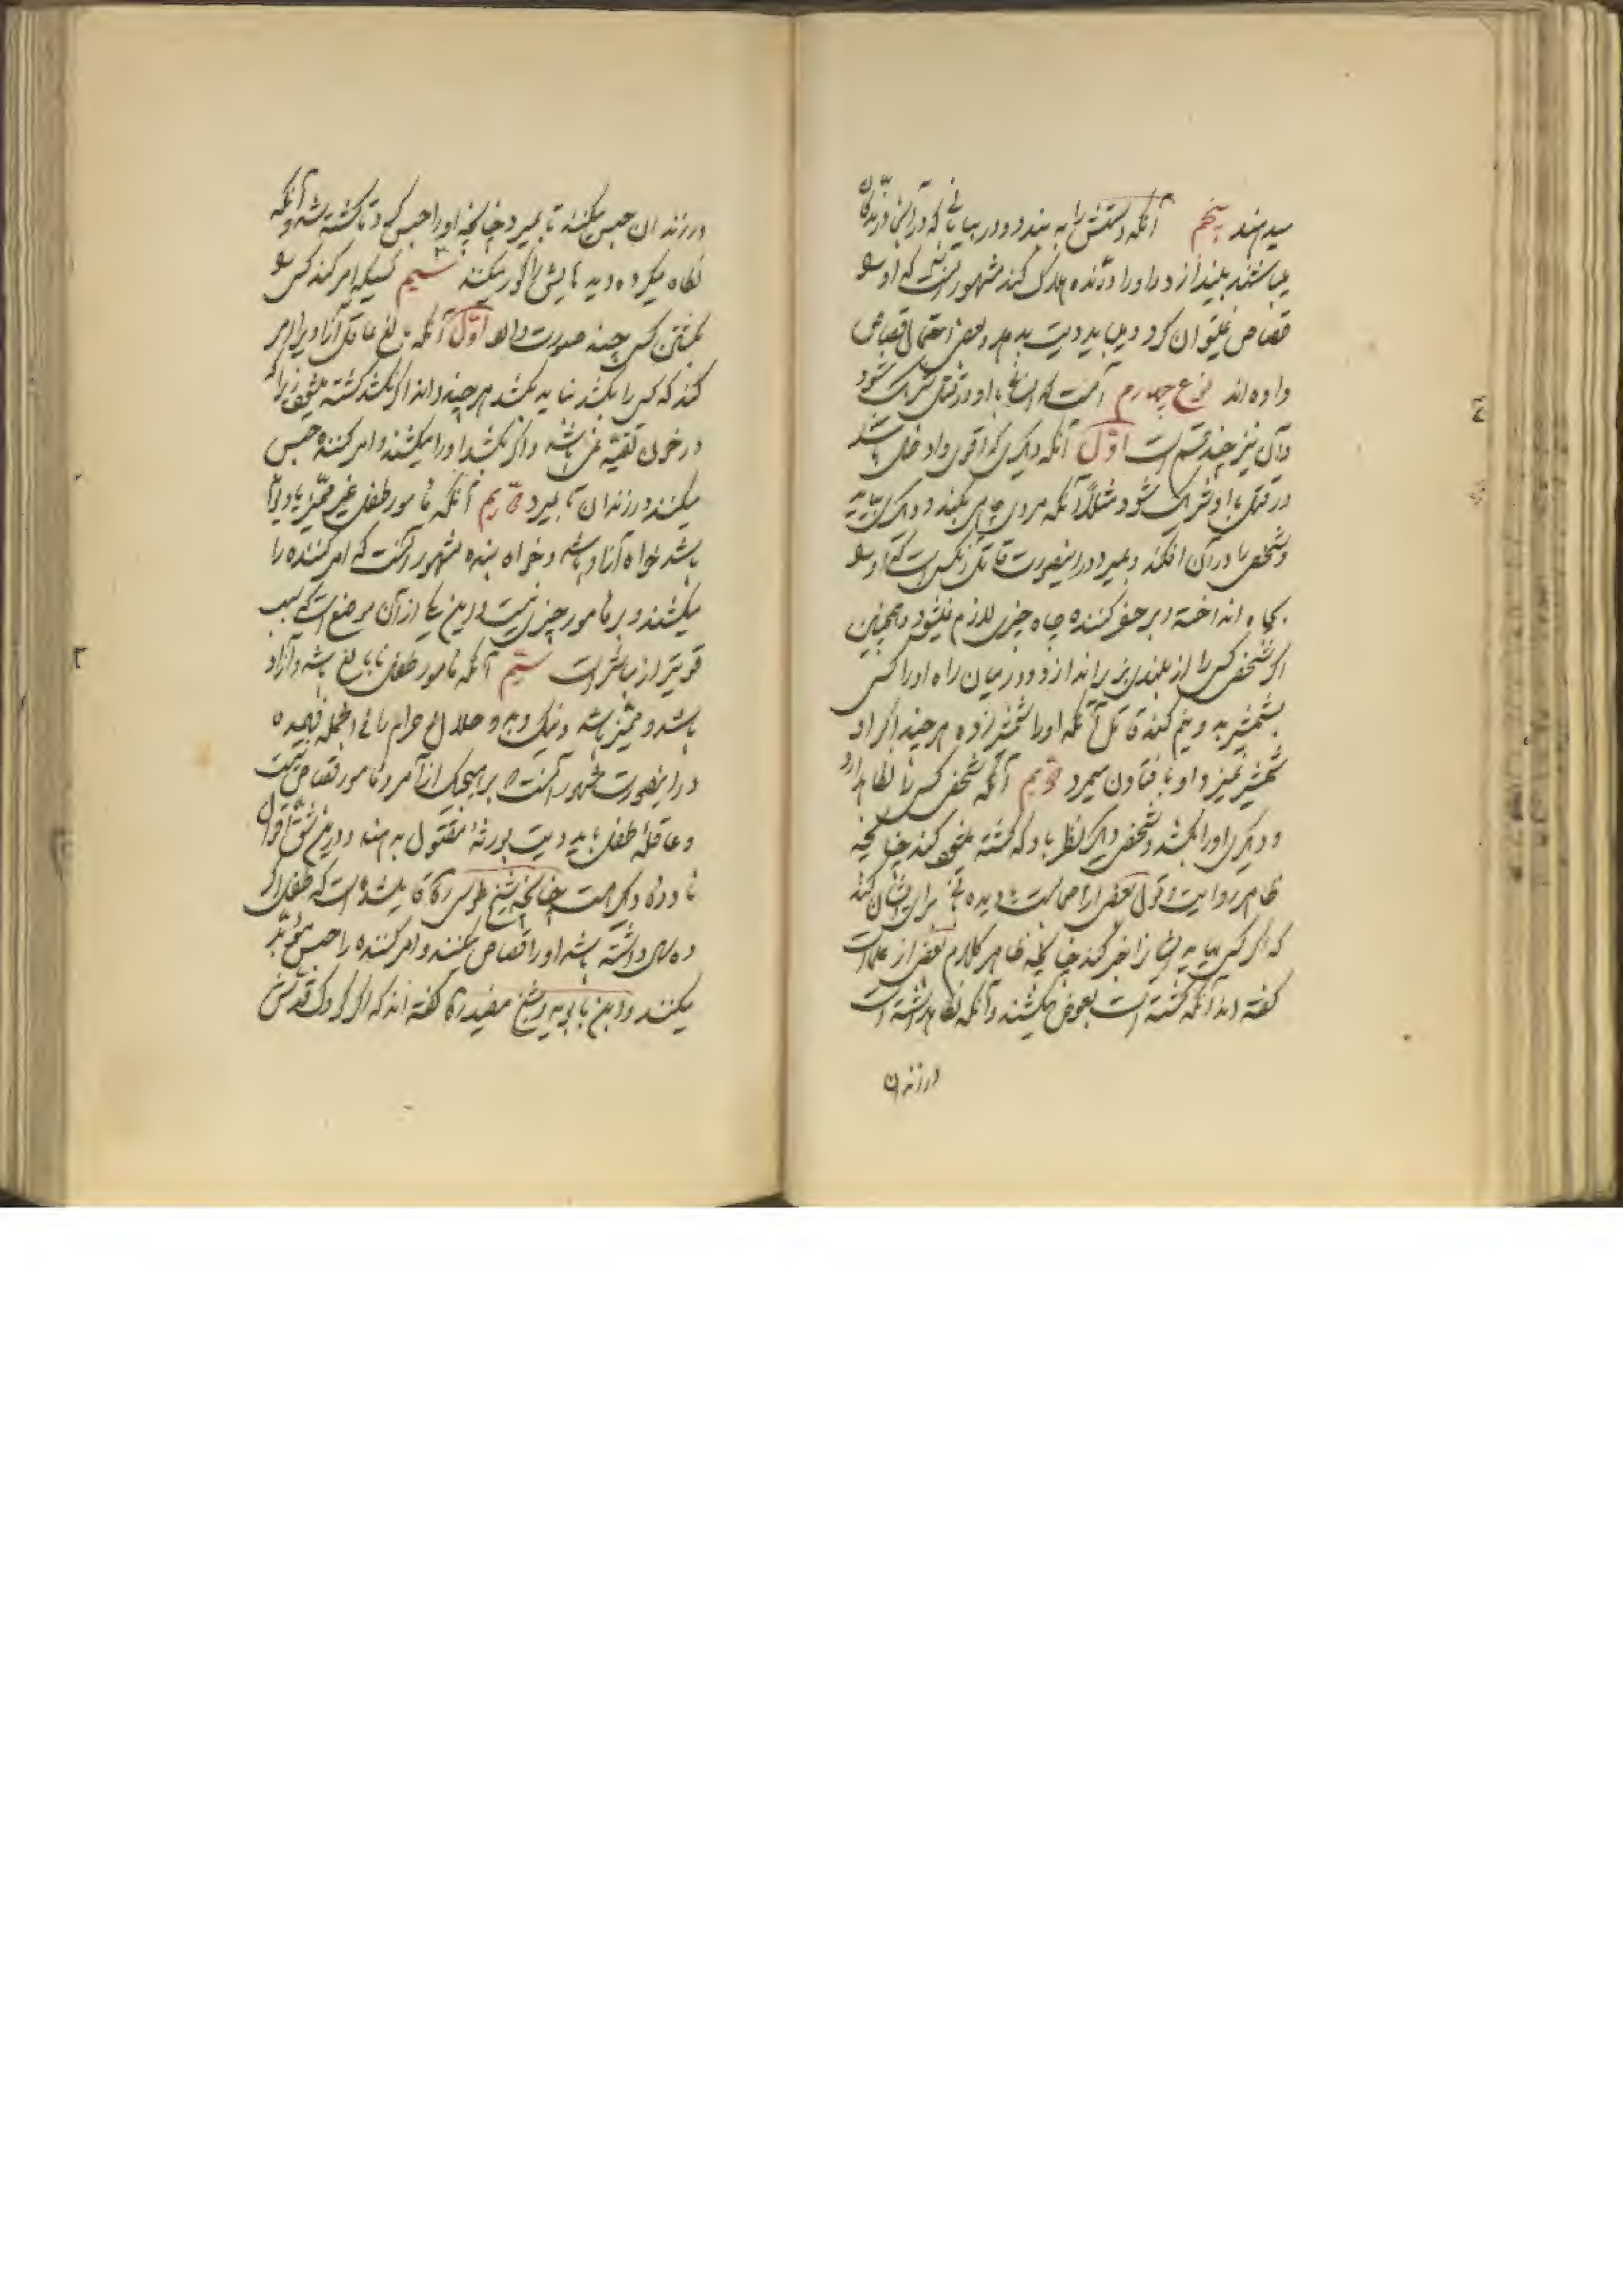 میدهند پنجم آنکه دستش را به بندد و در بیابانی که در آنجا درندگان
میباشند بیندازد و او را درنده هلاک کند مشهور آنست که او را
قصاص نمیتوان کرد و میباید دیت بدهد و بعضی احتمال قصاص
داده اند نوع چهارم آنست که انسانی با او در قتل شریک شود
و آن نیز چند قسم است اول آنکه دیگری که اقوی و ادخل باشد
در قتل با او شریک شود مثلاً آنکه مردی چاهی بکند و دیگری بیاید
و شخصی را در آن افکند و بمیرد در اینصورت قاتل آنکس است که او را
بچاه انداخته و بر حفر کننده چاه چیزی لازم نمیشود و همچنین
اگر شخصی کسی را از بلندی بزیر اندازد و در میان راه او را کسی
بشمشیر به دو نیم کند قاتل آنکه او را شمشیر زده هر چند اگر او
شمشیر نمیزد او بافتادن میمرد دویم آنکه شخصی کسی را نگاه دارد
و دیگری او را بکشد و شخص دیگر نظر باو کند که کشته میشود چنانچه
ظاهر روایت و قول بعضی از اصحابست یا دیده بانی برای ایشان کند
که اگر کسی بیاید ایشان را خبر کند چنانچه ظاهر کلام بعضی از علما است
گفته اند آنکه کشته است بعوض میکشند و آنکه نگاه داشته است
در زندان
در زندان حبس میکنند تا بمیرد چنانچه او را حبس کرد تا کشته شد و آنکه
نگاه میکرده دیده هایش را کور میکنند سیم کسیکه امر کند کسی را
بکشتن کسی چند صورت دارد اول آنکه بالغ عاقل آزادی را امر
کند که کسی را بکشد نباید بکشد هر چند داند اگر نکشد کشته میشود زیرا که
در خون تقیه نمی باشد و اگر بکشد او را میکشند و امر کننده حبس
میکنند در زندان تا بمیرد دویم آنکه مامور طفل غیر ممیز یا دیوانه
باشد خواه آزاد باشد و خواه بنده مشهور آنست که امر کننده را
میکشند و بر مامور چیزی نیست و این یکی از آن مواضع است که سبب
قویتر از مباشر است سیم آنکه مامور طفل نابالغ باشد و آزاد
باشد و ممیز باشد و نیک و بد و حلال و حرام را فی الجمله فهمیده
در اینصورت مشهور آنست که بر هیچیک از آمر و مامور قصاص نیست
و عاقلهٔ طفل باید دیت بورثهٔ مقتول بدهند و در این شق اقوال
نادره دیگر هست چنانچه شیخ طوسی ره قایل شده است که طفل اگر
ده سال داشته باشد او را قصاص میکنند و امر کننده را حبس مؤبد
میکنند و ابن بابویه و شیخ مفید ره گفته اند که اگر کودک قدش